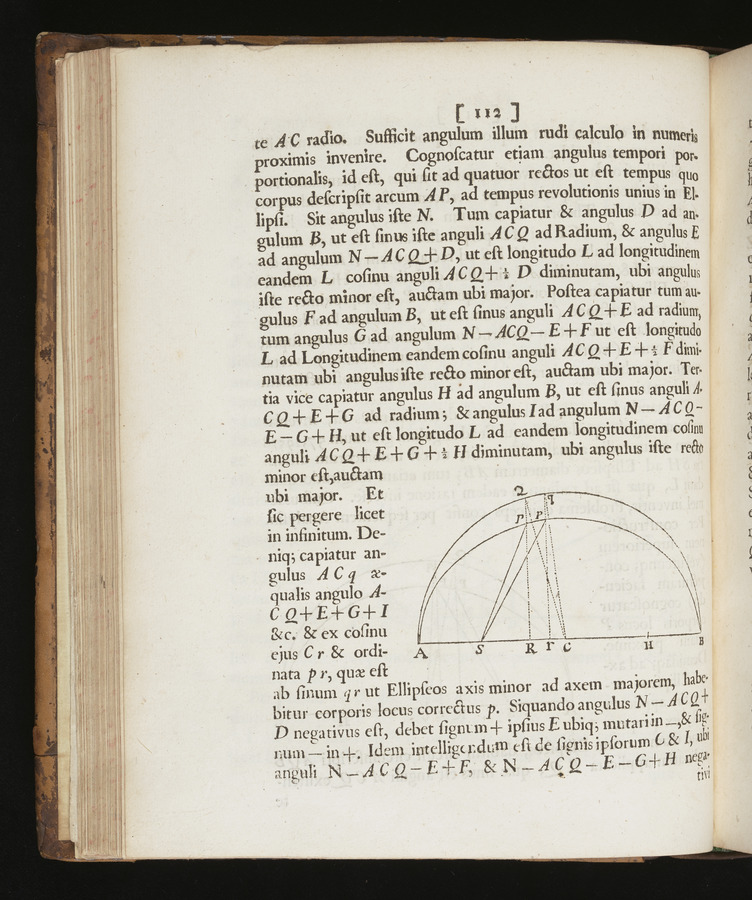 [ 112 ]
te A C radio. Sufficit angulum illum rudi calculo in numeris
proximis invenire. Cognoſcatur etiam angulus tempori por-
portionalis, id eſt, qui ſit ad quatuor rectos ut eſt tempus quo
corpus deſcripſit arcum A P, ad tempus revolutionis unius in El-
lipſi. Sit angulus iſte N. Tum capiatur & angulus D ad an-
gulum B, ut eſt ſinus iſte anguli A C Q ad Radium, & angulus E
ad angulum N — A C Q + D, ut eſt longitudo L ad longitudinem
eandem L coſinu anguli A C Q + ½ D diminutam, ubi angulus
iſte recto minor eſt, auctam ubi major. Poſtea capiatur tum au-
gulus F ad angulum B, ut eſt ſinus anguli A C Q + E ad radium,
tum angulus G ad angulum N — ACQ — E + F ut eſt longitudo
L ad Longitudinem eandem coſinu anguli A C Q + E + ½ F dimi-
nutam ubi angulus iſte recto minor eſt, auctam ubi major. Ter-
tia vice capiatur angulus H ad angulum B, ut eſt ſinus anguli A-
C Q + E + G ad radium; & angulus I ad angulum N — A C Q -
E — G + H, ut eſt longitudo L ad eandem longitudinem coſinu
anguli A C Q + E + G + ½ H diminutam, ubi angulus iſte recto
minor eſt, auctam
ubi major. Et
ſic pergere licet
in infinitum. De-
niq; capiatur an-
gulus A C q æ-
qualis angulo A-
C Q + E + G + I
&c. & ex coſinu
ejus C r & ordi-
nata p r, quæ eſt
Q q
P p
A S R r C H B
ab ſinum q r ut Ellipſeos axis minor ad axem majorem, habe-
bitur corporis locus correctus p. Siquando angulus N — A C Q +
D negativus eſt, debet ſignum + ipſius E ubiq; mutari in —, & ſig-
num — in +. Idem intelligendum eſt de ſignis ipſorum G & I, ubi
anguli N — A C Q — E + F, & N — A C Q — E — G + H nega-
tivi